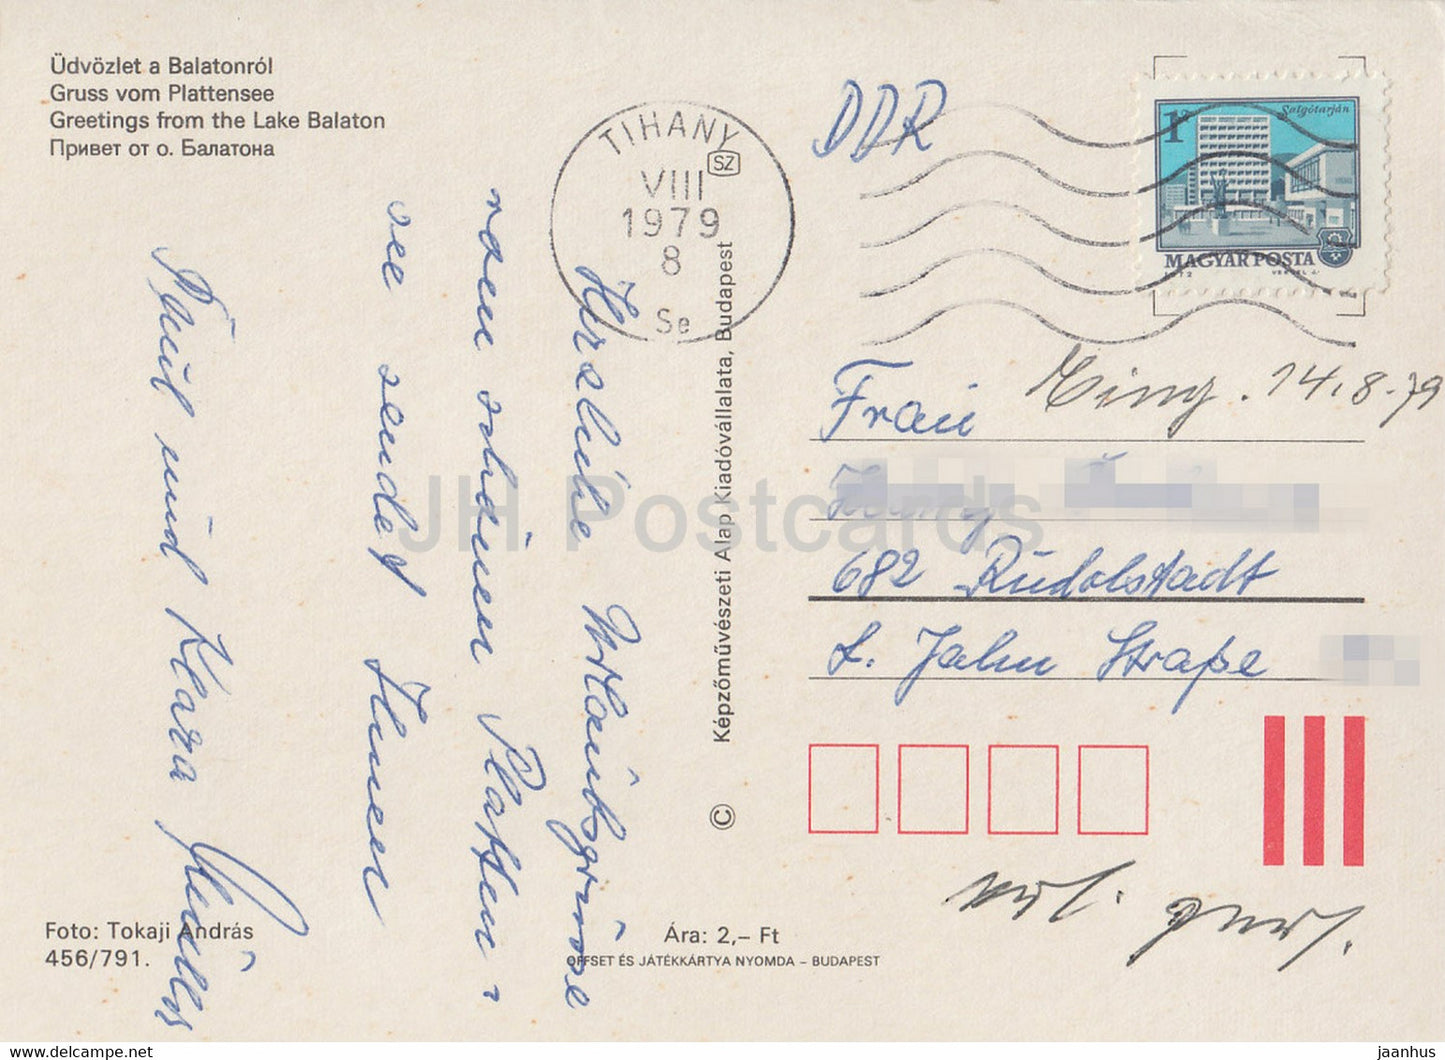 Üdvözlet a Balatonról
Gruss vom Plattensee
Greetings from the Lake Balaton
Привет от о. Балатона
TIHANY
SZ
VIII
1979
8
Se
DDR
1Ft
Salgótarján
MAGYAR POSTA
1972
VERTEL J.
Herzliche Urlaubsgrüsse
vom schönen Platten-
see sendet Ihnen
und Klara
Frau
14.8.79
682 Rudolstadt
L. Jahn Straße
Képzőművészeti Alap Kiadóvállalata, Budapest
©
JH Postcards
Foto: Tokaji András
456/791.
Ára: 2,– Ft
OFFSET ÉS JÁTÉKKÁRTYA NYOMDA – BUDAPEST
eu.jh-postcards.com
jaanhus